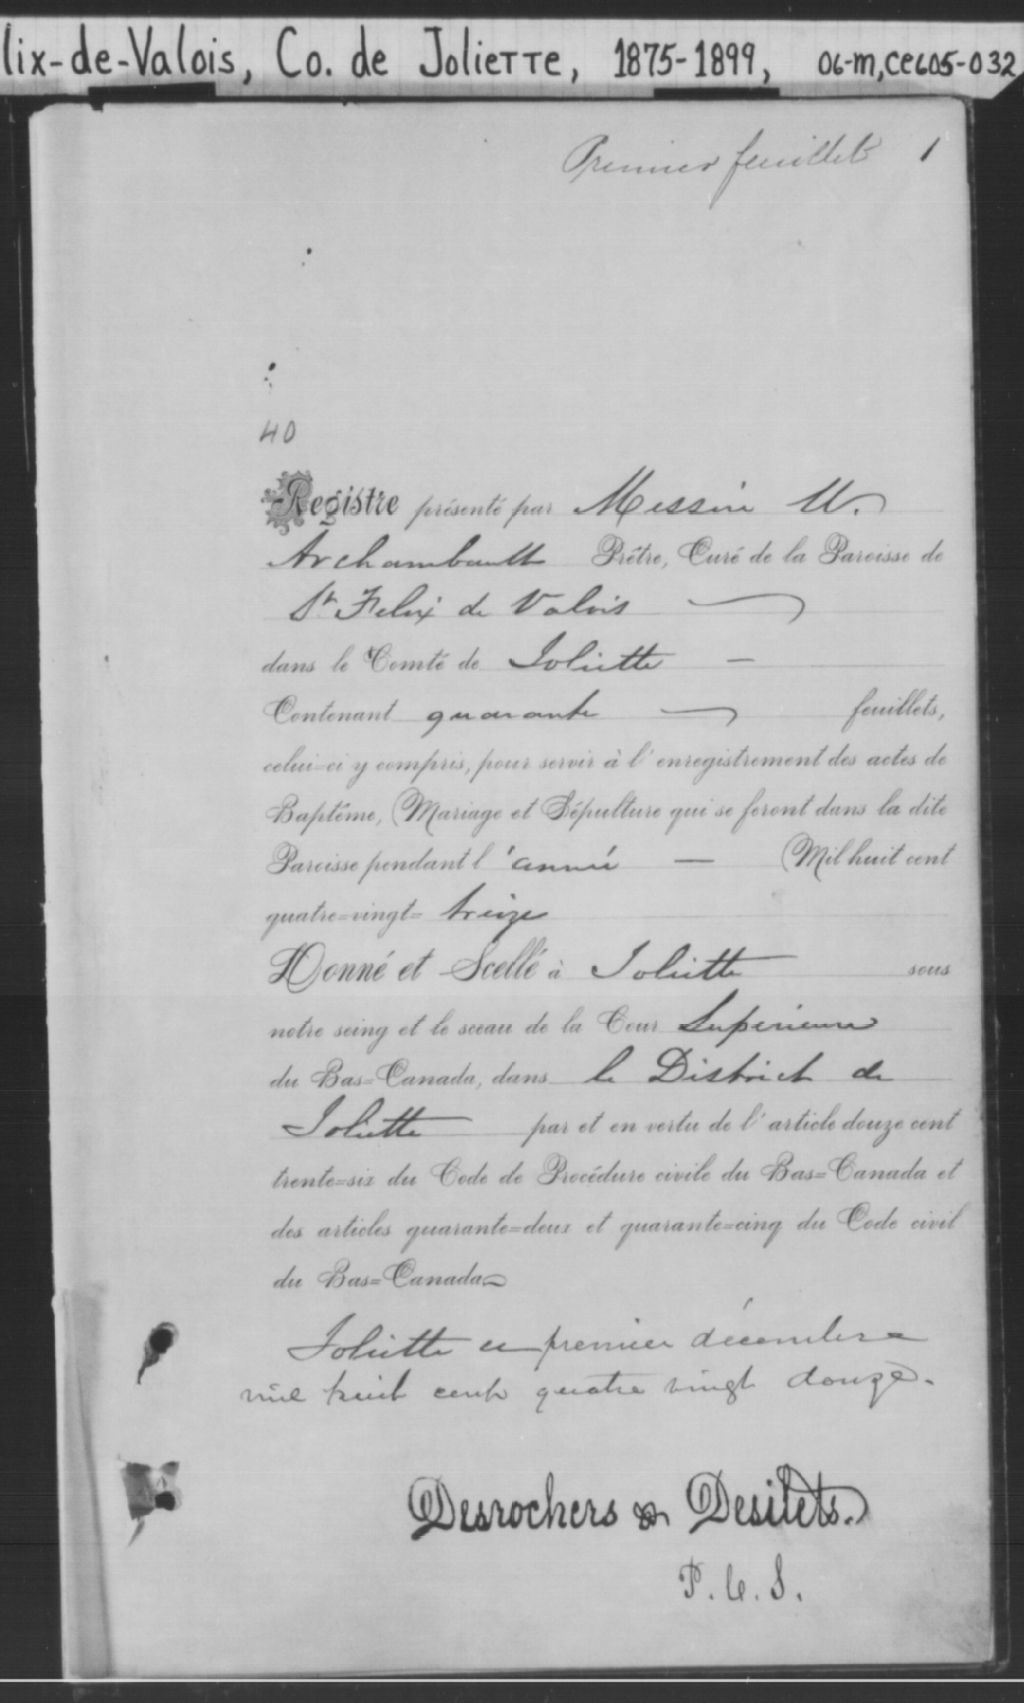 lix-de-Valois, Co. de Joliette, 1875-1899, 06-M,CE605-032
Premier feuillet 1
40
Registre présenté par Messire U.
Archambault Prêtre, Curé de la Paroisse de
St Felix de Valois
dans le Comté de Joliette —
Contenant quarante — feuillets,
celui-ci y compris, pour servir à l'enregistrement des actes de
Baptême, Mariage et Sépulture qui se feront dans la dite
Paroisse pendant l'année — Mil huit cent
quatre-vingt- treize
Donné et Scellé à Joliette sous
notre seing et le sceau de la Cour Superieure
du Bas-Canada, dans le District de
Joliette par et en vertu de l'article douze cent
trente-six du Code de Procédure civile du Bas-Canada et
des articles quarante-deux et quarante-cinq du Code civil
du Bas-Canada
Joliette ce premier décembre
mil huit cent quatre vingt douze.
Desrochers & Desilets.
P. C. S.